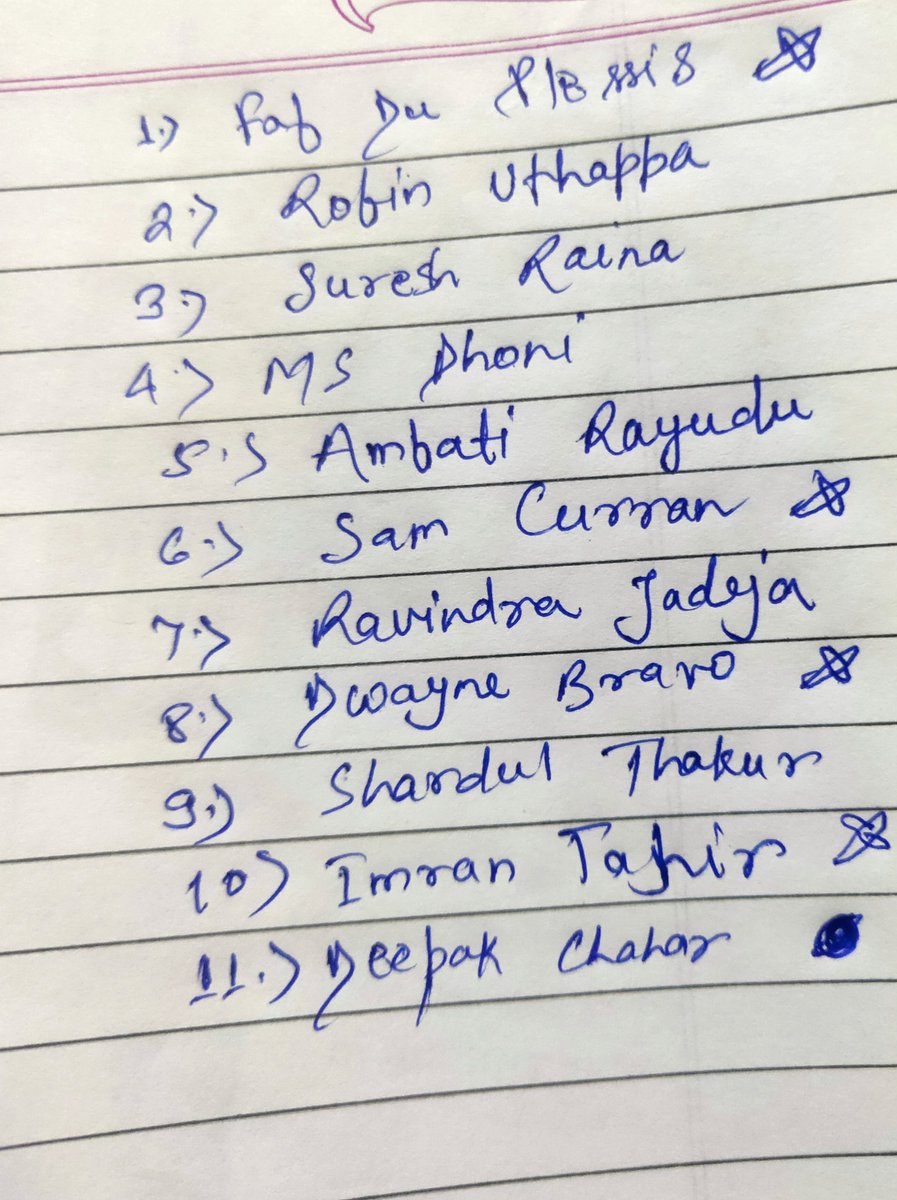 1.) Faf Du Plessis ☆
2.) Robin Uthappa
3.) Suresh Raina
4.) MS Dhoni
5.) Ambati Rayudu
6.) Sam Curran ☆
7.) Ravindra Jadeja
8.) Dwayne Bravo ☆
9.) Shardul Thakur
10) Imran Tahir ☆
11.) Deepak Chahar